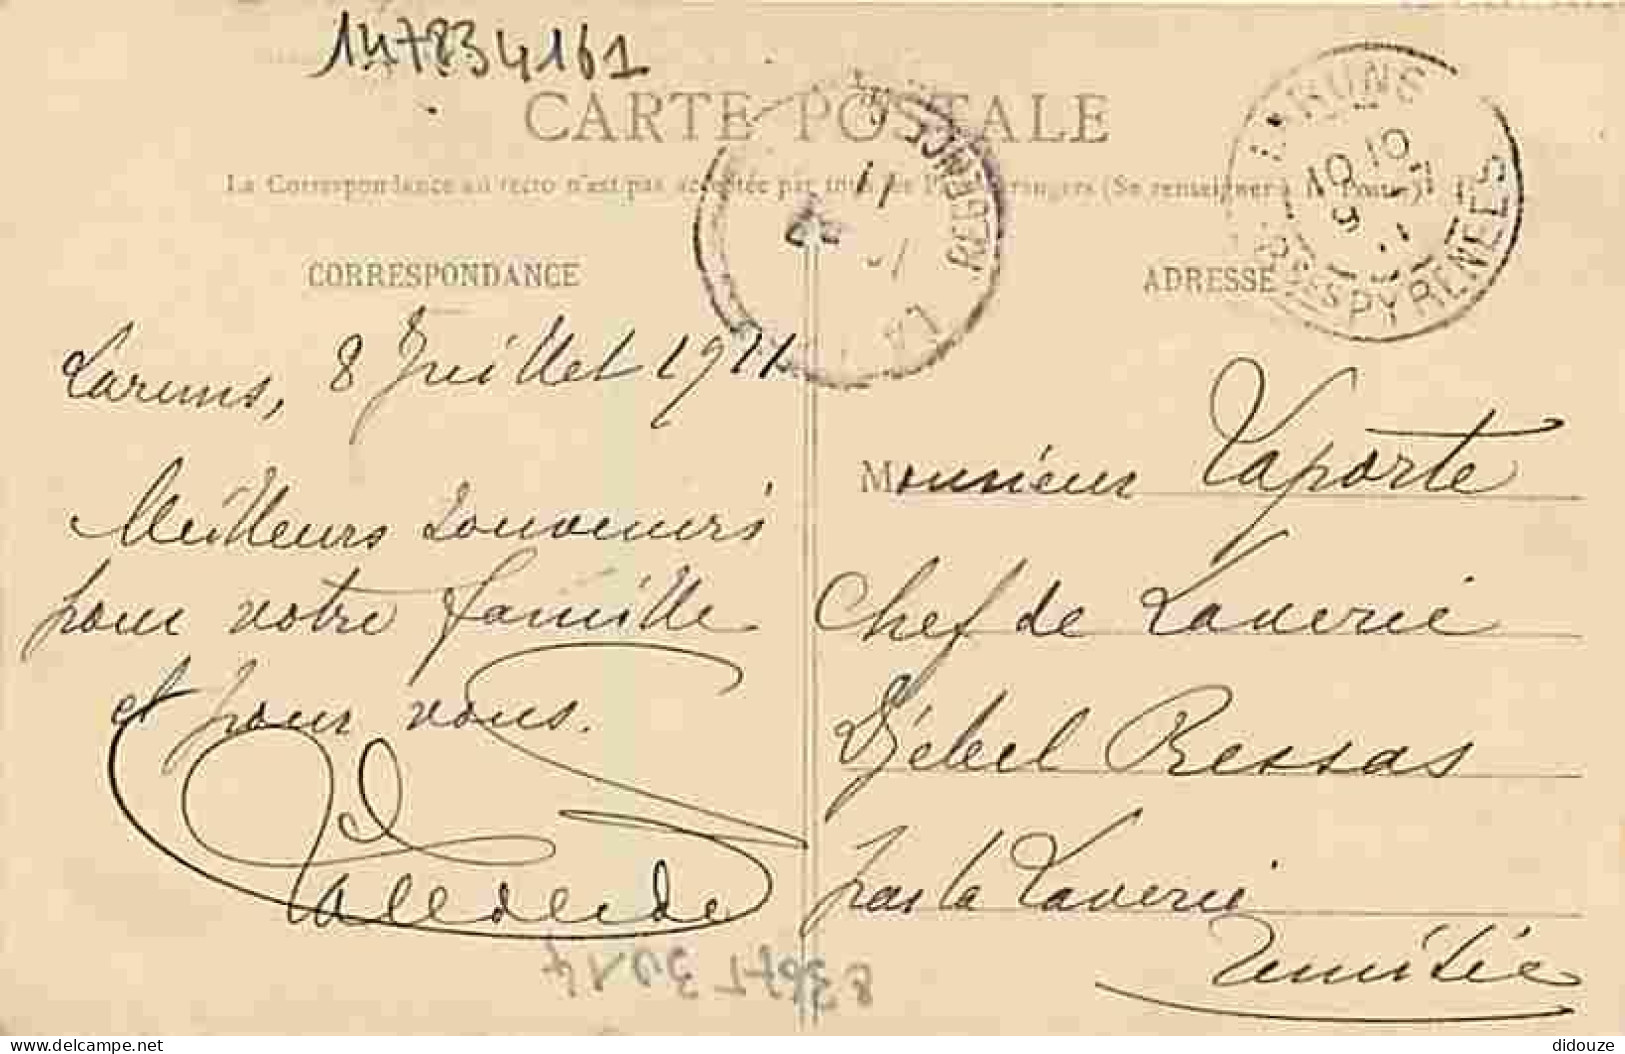 147834161
CARTE POSTALE
La Correspondance au recto n'est pas acceptée par tous les Pays étrangers (Se renseigner à la Poste)
LARUNS
10 10
9 -7
BSES PYRENEES
REGENCE
LA
11
CORRESPONDANCE
ADRESSE
Laruns, 8 Juillet 1911
Meilleurs souvenirs
pour votre famille
et pour vous.
Monsieur Laporte
Chef de Laverie
Djebel Ressas
par la Laverie
Tunisie
delcampe.net
didouze